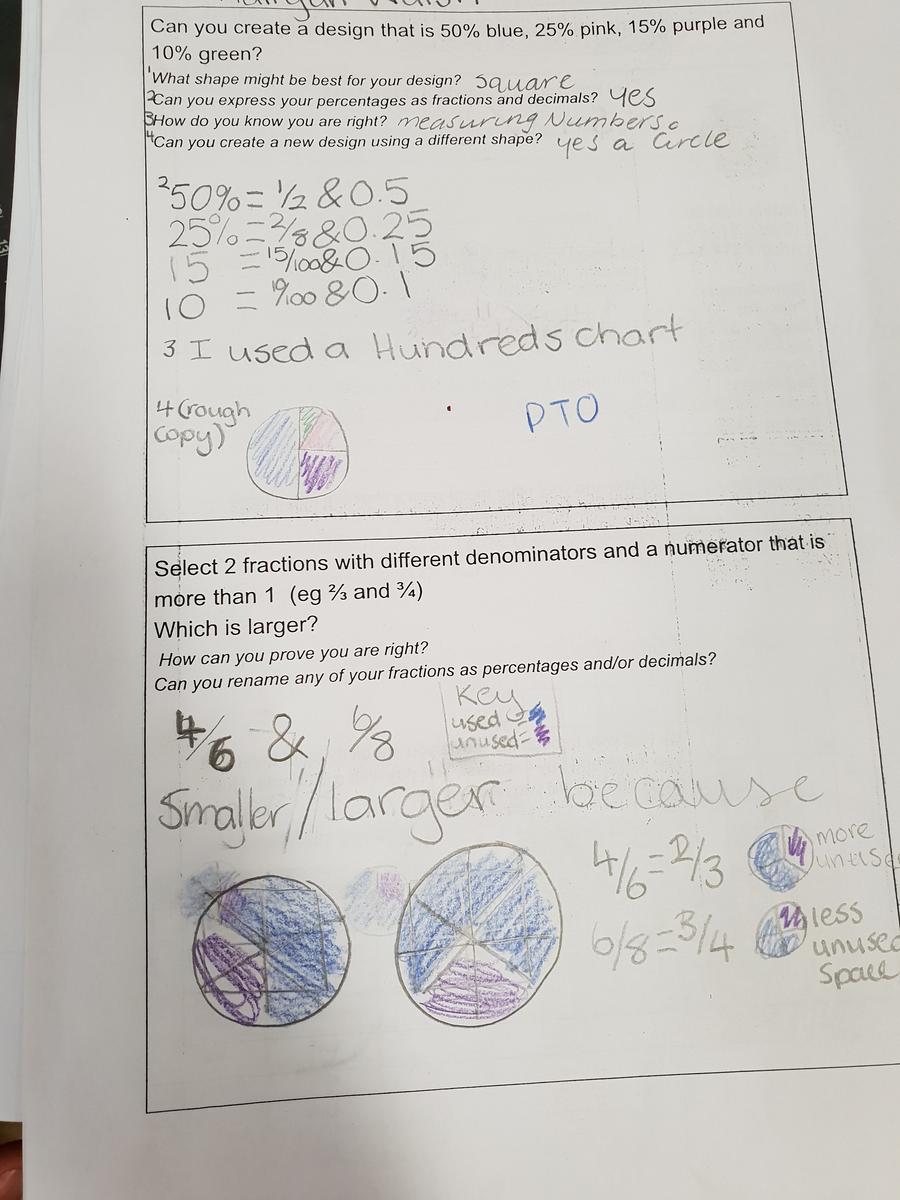 Can you create a design that is 50% blue, 25% pink, 15% purple and
10% green?
1 What shape might be best for your design? square
2 Can you express your percentages as fractions and decimals? yes
3 How do you know you are right? measuring Numbers.
4 Can you create a new design using a different shape? yes a Circle
2 50% = 1/2 & 0.5
25% = 2/8 & 0.25
15 = 15/100 & 0.15
10 = 10/100 & 0.1
3 I used a Hundreds chart
4 (rough
copy)
PTO
Select 2 fractions with different denominators and a numerator that is
more than 1 (eg ⅔ and ¾)
Which is larger?
How can you prove you are right?
Can you rename any of your fractions as percentages and/or decimals?
Key
used =
unused =
4/6 & 6/8
Smaller // larger because
4/6 = 2/3 more
unused
6/8 = 3/4 less
unused
Space